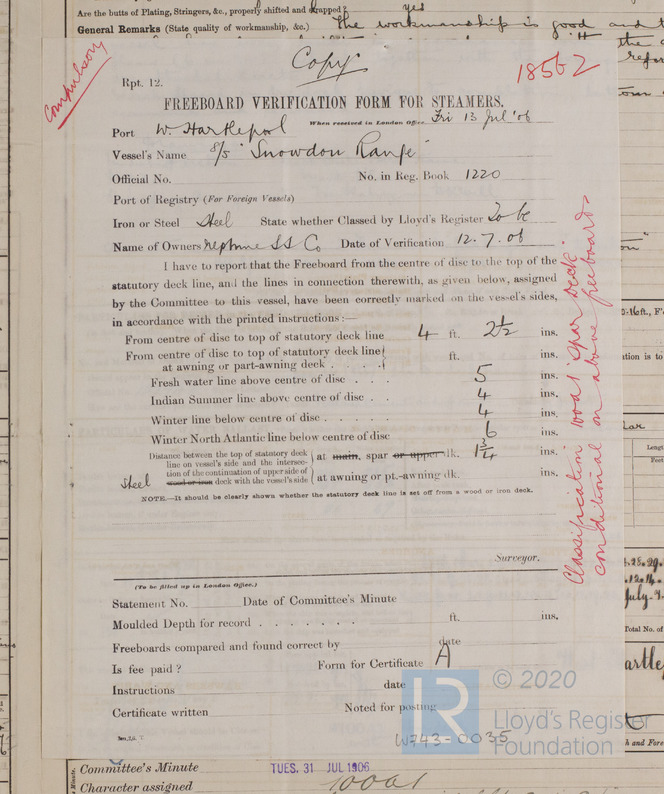 Are the butts of Plating, Stringers, &c., properly shifted and strapped? yes
General Remarks (State quality of workmanship, &c.) The workmanship is good and
Copy
compulsory
18562
Rpt. 12.
FREEBOARD VERIFICATION FORM FOR STEAMERS.
When received in London Office, Fri 13 Jul '06
Port W. Hartlepool
Vessel's Name S/S "Snowdon Range"
Official No. No. in Reg. Book 1220
Port of Registry (For Foreign Vessels)
Iron or Steel Steel State whether Classed by Lloyd's Register To be
Name of Owners Neptune SS Co Date of Verification 12.7.06
I have to report that the Freeboard from the centre of disc to the top of the
statutory deck line, and the lines in connection therewith, as given below, assigned
by the Committee to this vessel, have been correctly marked on the vessel's sides,
in accordance with the printed instructions:—
From centre of disc to top of statutory deck line 4 ft. 2½ ins.
From centre of disc to top of statutory deck line
at awning or part-awning deck . . . . ft. ins.
Fresh water line above centre of disc . . . 5 ins.
Indian Summer line above centre of disc . . 4 ins.
Winter line below centre of disc . . . . . . 4 ins.
Winter North Atlantic line below centre of disc 6 ins.
Distance between the top of statutory deck
line on vessel's side and the intersec-
tion of the continuation of upper side of
Steel wood or iron deck with the vessel's side
at main, spar or upper dk. 1¾ ins.
at awning or pt.-awning dk. ins.
NOTE.—It should be clearly shown whether the statutory deck line is set off from a wood or iron deck.
Classification 100A1 "spar deck"
conditional on above freeboards
Surveyor.
(To be filled up in London Office.)
Statement No. Date of Committee's Minute
Moulded Depth for record . . . . . . . ft. ins.
Freeboards compared and found correct by date
Is fee paid? Form for Certificate A
Instructions date
Certificate written Noted for posting
W743-0035
LR
© 2020
Lloyd's Register
Foundation
Committee's Minute TUES. 31 JUL 1906
Character assigned 100A1